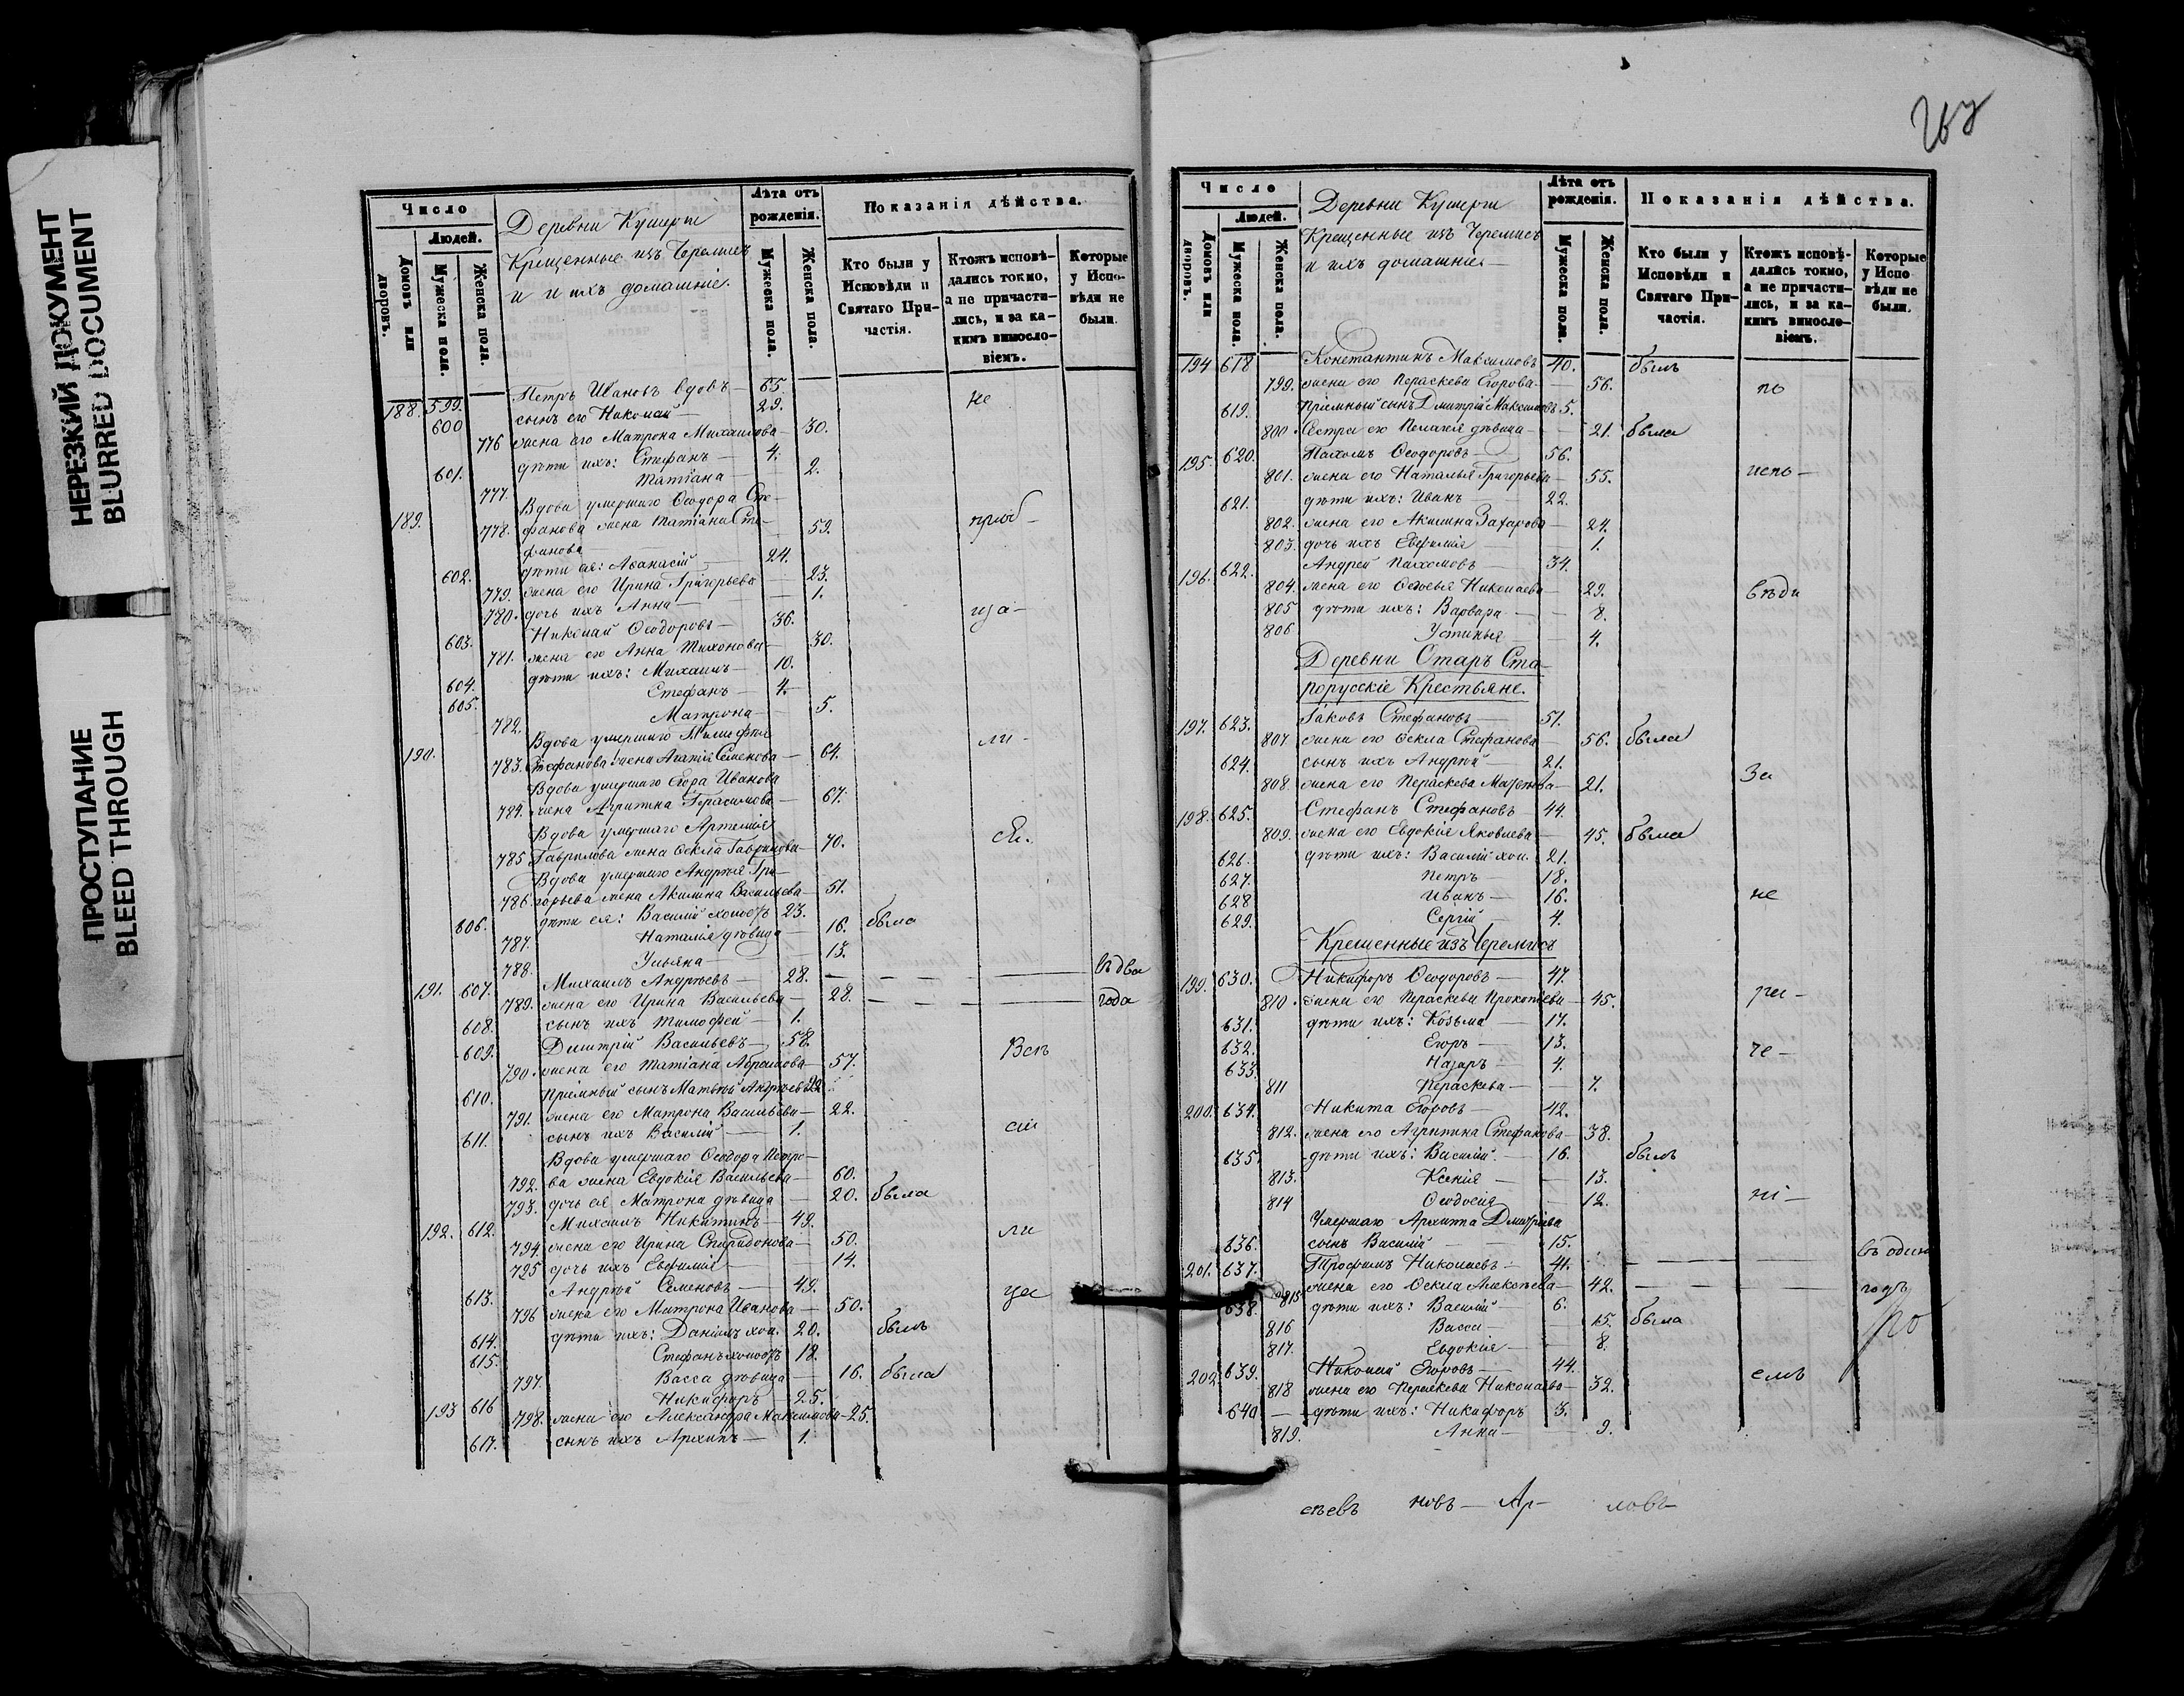 НЕРЕЗКИЙ ДОКУМЕНТ
BLURRED DOCUMENT
ПРОСТУПАНИЕ
BLEED THROUGH
Число
Людей.
Домовъ или дворовъ.
Мужеска пола.
Женска пола.
Деревни Кушерги
Крещенные изъ Черемисъ
и и ихъ домашніе.
Лѣта отъ рожденія.
Мужеска пола.
Женска пола.
Показанія дѣйства.
Кто были у Исповѣди и Святаго Причастія.
Ктожъ исповѣдались токмо, а не причастились, и за какимъ винословіемъ.
Которые у Исповѣди не были.
188. 599. Петръ Ивановъ вдовъ — 65. не
600 сынъ его Николай — 29.
776 жена его Матрона Михаилова — 30.
601. дѣти ихъ: Стефанъ — 4.
777. Татіана — 2.
Вдова умершаго Ѳеодора Сте-
189. 778. фанова жена Татіана Сте- 59. приоб-
фанова
602. дѣти ея: Аѳанасій — 24.
779. жена его Ирина Григорьева — 23.
780. дочь ихъ Анна — 1. ща-
603. Николай Ѳеодоровъ — 36.
781. жена его Анна Тихонова — 30.
604. дѣти ихъ: Михаилъ — 10.
605. Стефанъ — 4.
782. Матрона — 5.
Вдова умершаго Тимофея ли-
190. 783. Стефанова жена Агапія Семенова — 64.
Вдова умершаго Егора Иванова
784. жена Агрипина Герасимова — 67.
Вдова умершаго Артемія сь.
785 Гаврилова жена Ѳекла Гаврилова — 70.
Вдова умершаго Андрея Гри-
786. горьева жена Акилина Васильева — 51.
606. дѣти ея: Василій холостъ 23.
787. Наталія дѣвица — 16. была
788. Ульяна — 13.
191. 607. Михаилъ Андреевъ — 28. — — въ два
789. жена его Ирина Васильева — 28. — — года
608. сынъ ихъ Тимофей — 1.
609. Димитрій Васильевъ — 58. Всѣ
790. жена его Татіана Абрамова — 57.
610. Пріемный сынъ Матвѣй Андреевъ 22
791. жена его Матрона Васильева — 22.
611. сынъ ихъ Василій — 1. сіи
Вдова умершаго Ѳеодора Петро-
792. ва жена Евдокія Васильева — 60.
793. дочь ея Матрона дѣвица — 20. была
192. 612. Михаилъ Никитинъ — 49. ли
794. жена его Ирина Спиридонова — 50.
795 дочь ихъ Евфимія — 14.
613. Андрей Семеновъ — 49.
796 жена его Матрона Иванова — 50.
614. дѣти ихъ: Даніилъ хол. 20. былъ
615. Стефанъ холостъ 18.
797. Васса дѣвица — 16. была
193 616 Никифоръ — 25.
798. жена его Александра Максимова — 25.
617. сынъ ихъ Архипъ — 1.
Число
Людей.
Домовъ или дворовъ.
Мужеска пола.
Женска пола.
Деревни Кушерги
Крещенные изъ Черемисъ
и ихъ домашніе —
Лѣта отъ рожденія.
Мужеска пола.
Женска пола.
Показанія дѣйства.
Кто были у Исповѣди и Святаго Причастія.
Ктожъ исповѣдались токмо, а не причастились, и за какимъ винословіемъ.
Которые у Исповѣди не были.
194 618 Константинъ Максимовъ 40. былъ
799. жена его Параскева Егорова — 56. по
619. Пріемный сынъ Дмитрій Максимовъ 5.
800. Сестра его Пелагея дѣвица — 21. была
195. 620. Пахомъ Ѳеодоровъ — 56.
801. жена его Наталья Григорьева — 55. испо-
621. дѣти ихъ: Иванъ — 22.
802. жена его Акилина Захарова — 24.
803. дочь ихъ Евфимія — 1.
196. 622. Андрей Пахомовъ — 34.
804. жена его Ѳедосья Николаева — 29. вѣди
805 дѣти ихъ: Варвара — 8.
806 Устинья — 4.
Деревни Отаръ Ста-
рорусскіе Крестьяне.
197. 623. Іаковъ Стефановъ — 51.
807. жена его Ѳекла Стефанова — 56. была
624. сынъ ихъ Андрей — 21. За
808. жена его Параскева Матвѣева — 21.
198. 625. Стефанъ Стефановъ 44.
809. жена его Евдокія Яковлева — 45. была
626. дѣти ихъ: Василій хол. 21.
627. Петръ — 18.
628 Иванъ — 16. не
629. Сергій — 4.
Крещенные изъ Черемисъ
199. 630. Никифоръ Ѳеодоровъ — 47.
810. жена его Параскева Прокопіева — 45. ра-
631. дѣти ихъ: Козьма — 17.
632. Егоръ — 13. че-
633. Назаръ — 4.
811 Параскева — 7.
200. 634. Никита Егоровъ — 42.
812. жена его Агрипина Стефанова — 38.
635. дѣти ихъ: Василій — 16. былъ
813. Ксенія — 13.
814 Ѳеодосія — 12. ні-
Умершаго Архипа Дмитріева
636. сынъ Василій — 15.
201. 637. Трофимъ Николаевъ — 41. — — въ одинъ
815 жена его Ѳекла Алексѣева — 42. — годъ
638. дѣти ихъ: Василій — 6.
816 Васса — 15. была
817. Евдокія — 8.
202 639. Николай Егоровъ — 44. емъ
818 жена его Параскева Николаева — 32.
640 — дѣти ихъ: Никифоръ 3.
819. Анна — 9.
сѣевъ новъ — Ар- ловъ